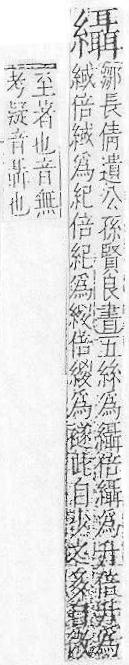 䌰
鄒長倩遺公孫賢良書五絲爲䌰倍䌰爲升倍升爲
緎倍緎爲紀倍紀爲緵倍緵爲襚此自少之多自微
至著也音無
考疑音聶也